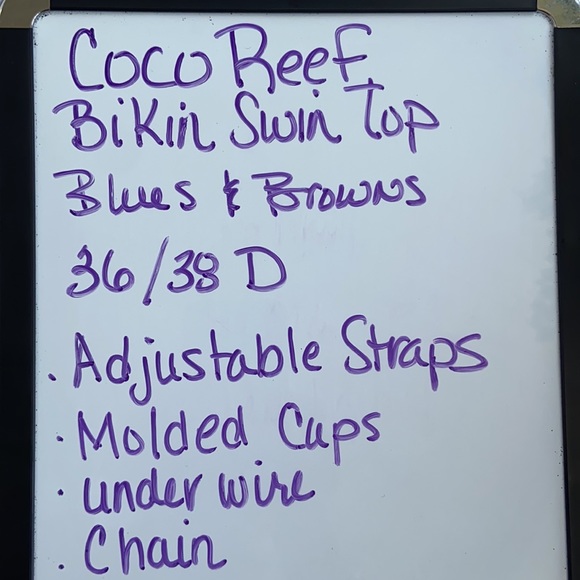 Coco Reef
Bikin Swin Top
Blues & Browns
36/38 D
. Adjustable Straps
. Molded Cups
. underwire
. Chain